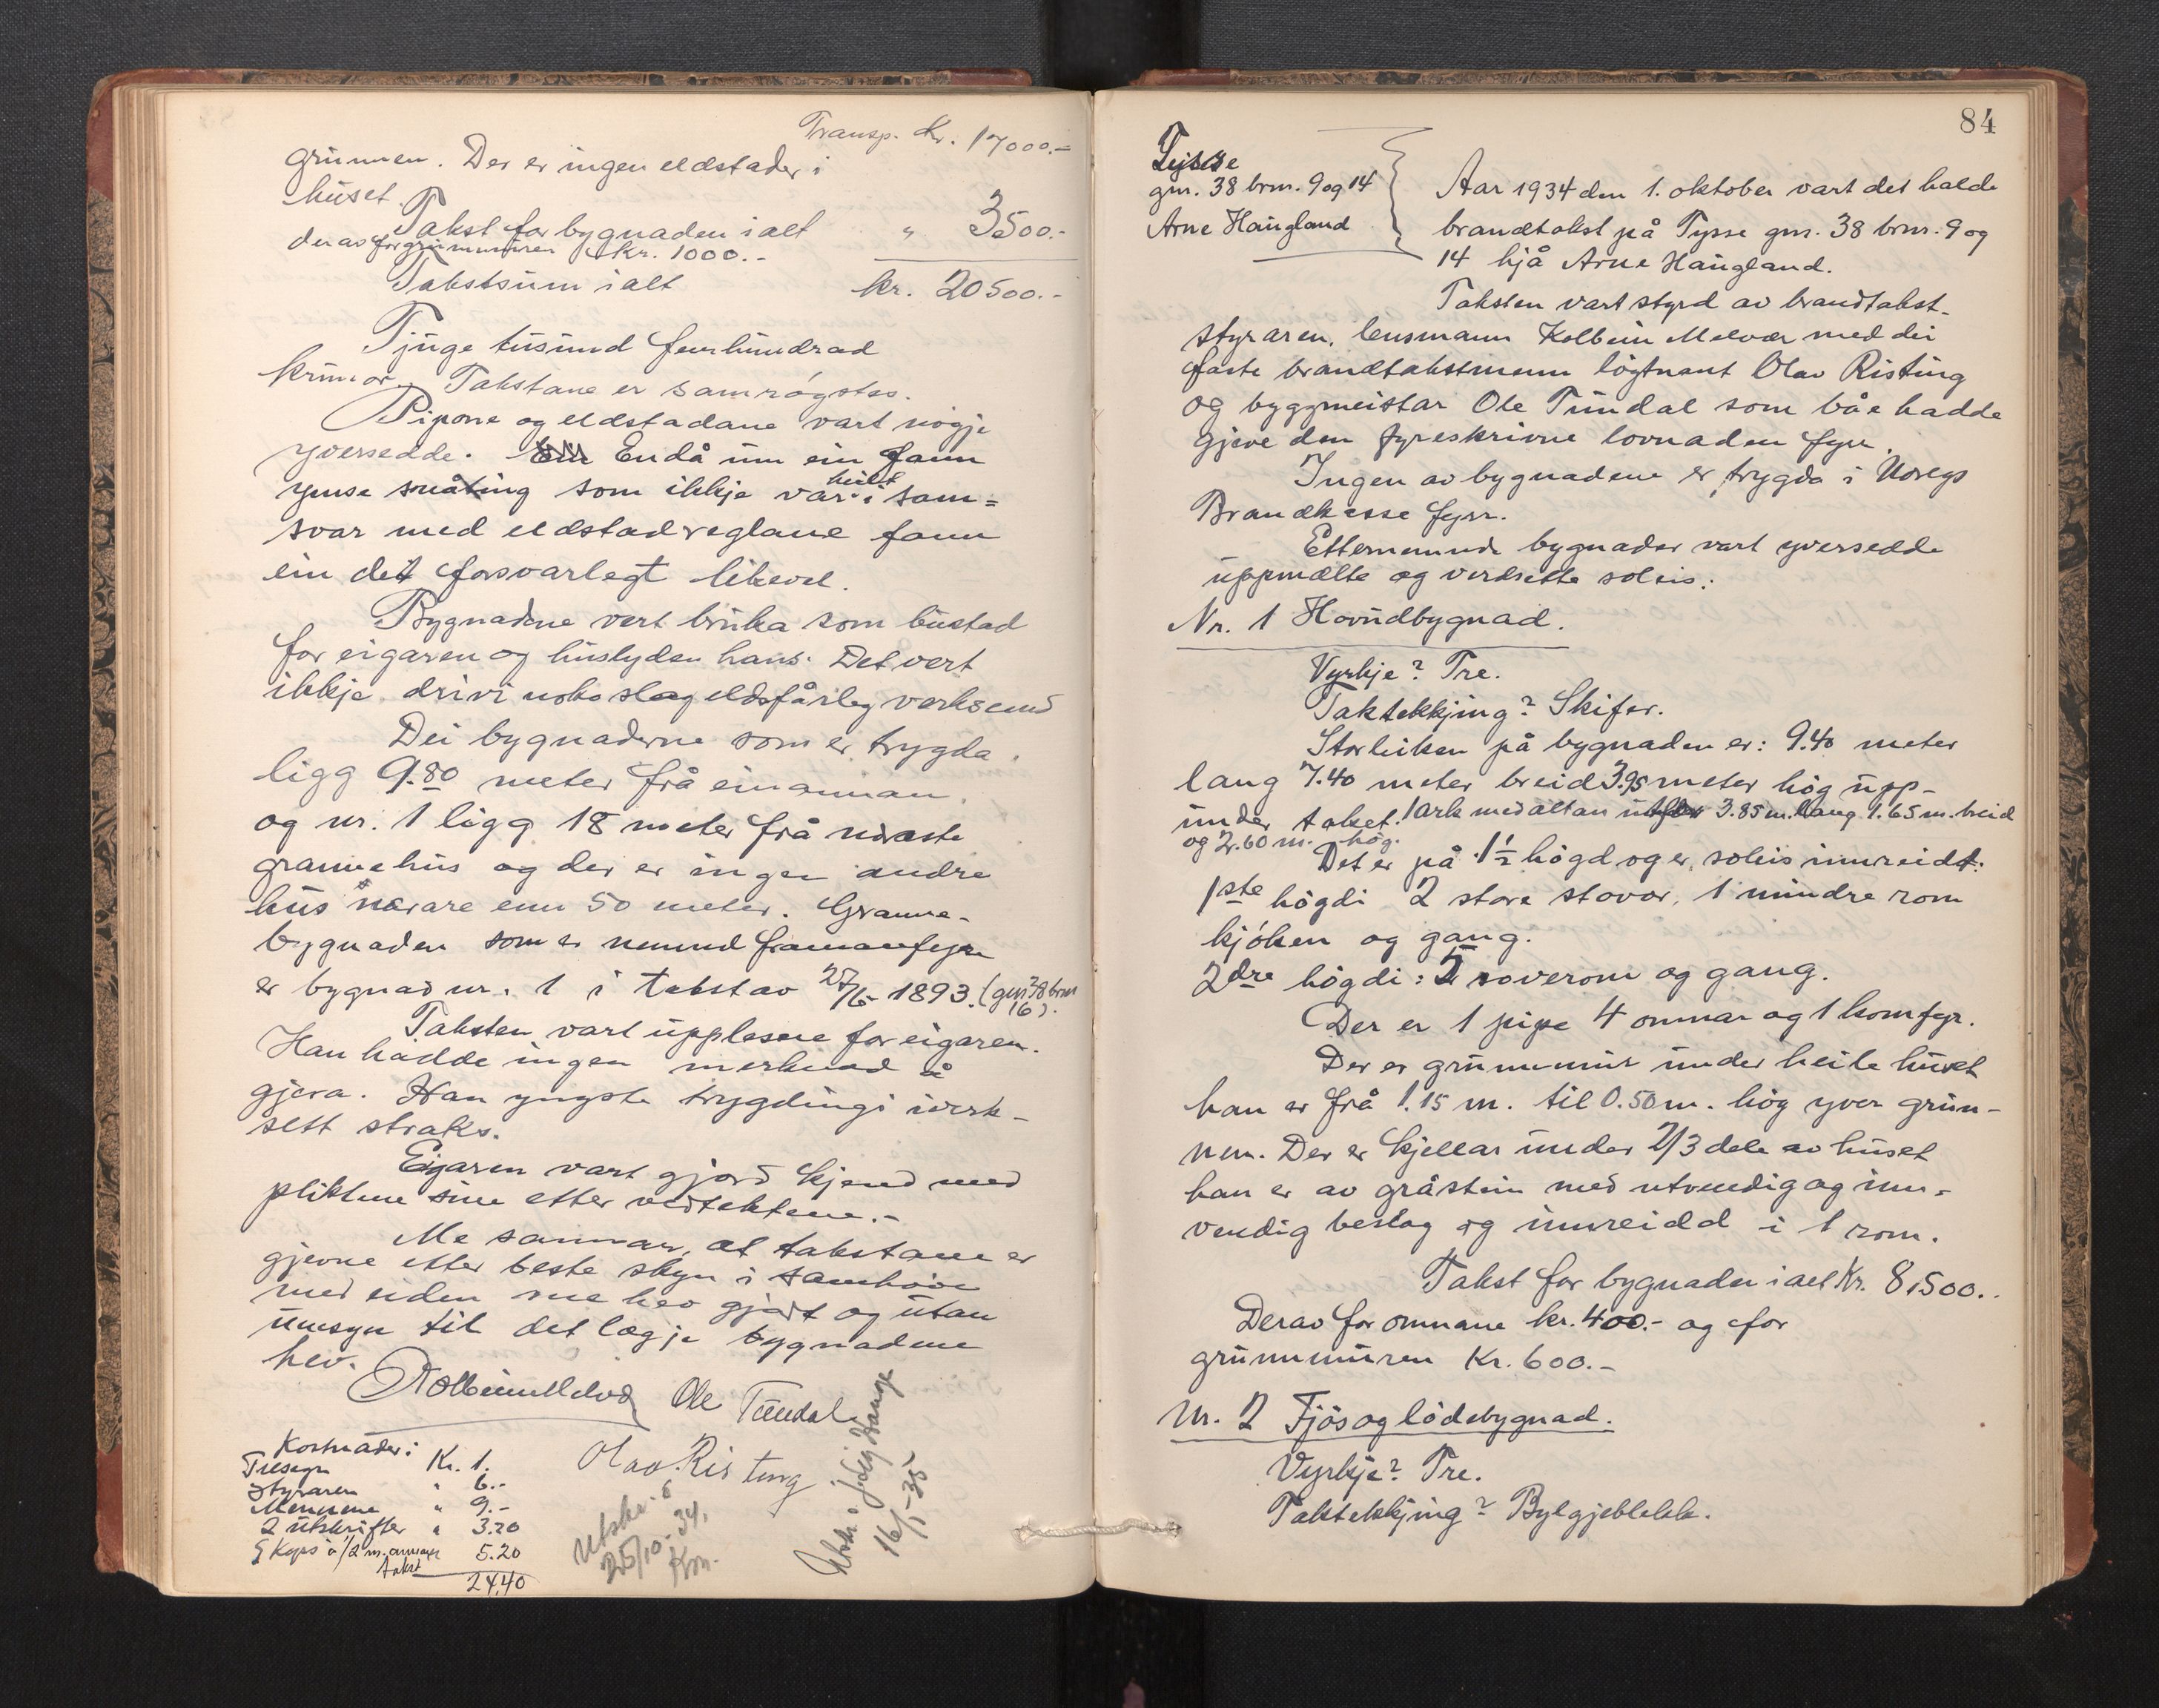 Transp. Kr. 17000.-
grunnen. Der er ingen eldstader i
huset.
Takst for bygnaden i alt " 3500.-
derav for grunnmuren kr. 1000.-
Takstsum i alt kr. 20500.-
Tjuge tusund femhundrad
krunor. Takstane er samrøystes.
Pipone og eldstadane vart nøgje
yversedde. Endå um ein fann
ymse småting som ikkje var heilt i sam=
svar med eldstadreglane fann
ein det forsvarlegt likevel.
Bygnadene vert bruka som bustad
for eigaren og huslyden hans. Det vert
ikkje drivi noko slag eldsfårleg verksemd
Dei bygnaderne som er trygda
ligg 9.80 meter frå einannan
og nr. 1 ligg 18 meter frå næraste
grannehus og der er ingen andre
hus nærare enn 50 meter. Granne-
bygnaden som er nemnd framanfyre
er bygnad nr. 1 i takst av 27/6- 1893. (gnr 38 brnr
16).
Taksten vart upplesen for eigaren.
Han hadde ingen merknad å
gjera. Han ynsgte trygdingi iverk-
sett straks.
Eigaren vart gjord kjend med
pliktene sine etter vedtektene.-
Me sannar, at takstane er
gjevne etter beste skyn i samhøve
med eiden me hev gjort og utan
umsyn til det lægje bygnadene
hev.
Kolbein Melvær Ole Tundal
Olav Risting
Kostnader:
Tilsegn Kr. 1.
Styraren " 6.-
Mennene " 9.-
2 utskrifter " 3.20
5.20
takst
24.40
Utskr.
25/10-34.
Km.
16/1-35
84
Tysse
gnr. 38 brnr. 9 og 14
Arne Haugland
Aar 1934 den 1. oktober vart det halde
brandtakst på Tysse gnr. 38 brnr. 9 og
14 hjå Arne Haugland.
Taksten vart styrd av brandtakst-
styraren, lensmann Kolbein Melvær med dei
faste brandtakstmenn løgtnant Olav Risting
og byggmeistar Ole Tundal som båe hadde
gjeve den fyreskrivne lovnaden fyrr.
Ingen av bygnadene er trygda i Noregs
Brandkasse fyrr.
Etternemnde bygnader vart yversedde
uppmælte og verdsette soleis:
Nr. 1 Hovudbygnad.
Vyrkje? Tre.
Taktekkjing? Skifer.
Storleiken på bygnaden er: 9.40 meter
lang 7.40 meter breid 3.95 meter høg upp-
under taket. 1 Ark med altan 3.85 m. lang 1.65 m. breid
og 2.60 m. høg.
Det er på 1 1/2 høgd og er soleis innreidt:
1ste høgdi 2 store stovor, 1 mindre rom
kjøken og gang.
2dre høgdi: 5 soverom og gang.
Der er 1 pipe 4 omnar og 1 komfyr.
Der er grunnmur under heile huset
han er frå 1.15 m. til 0.50 m. høg yver grun-
nen. Der er kjellar under 2/3 dele av huset
han er av gråstein med utvendig og inn-
vendig beslag og innreidd i 1 rom.
Takst for bygnaden i alt Kr. 8,500.-
Derav for omnane kr. 400.- og for
grunnmuren Kr. 600.-
Nr. 2 Fjøs og lødebygnad.
Vyrkje? Tre.
Taktekkjing? Bylgjeblekk.